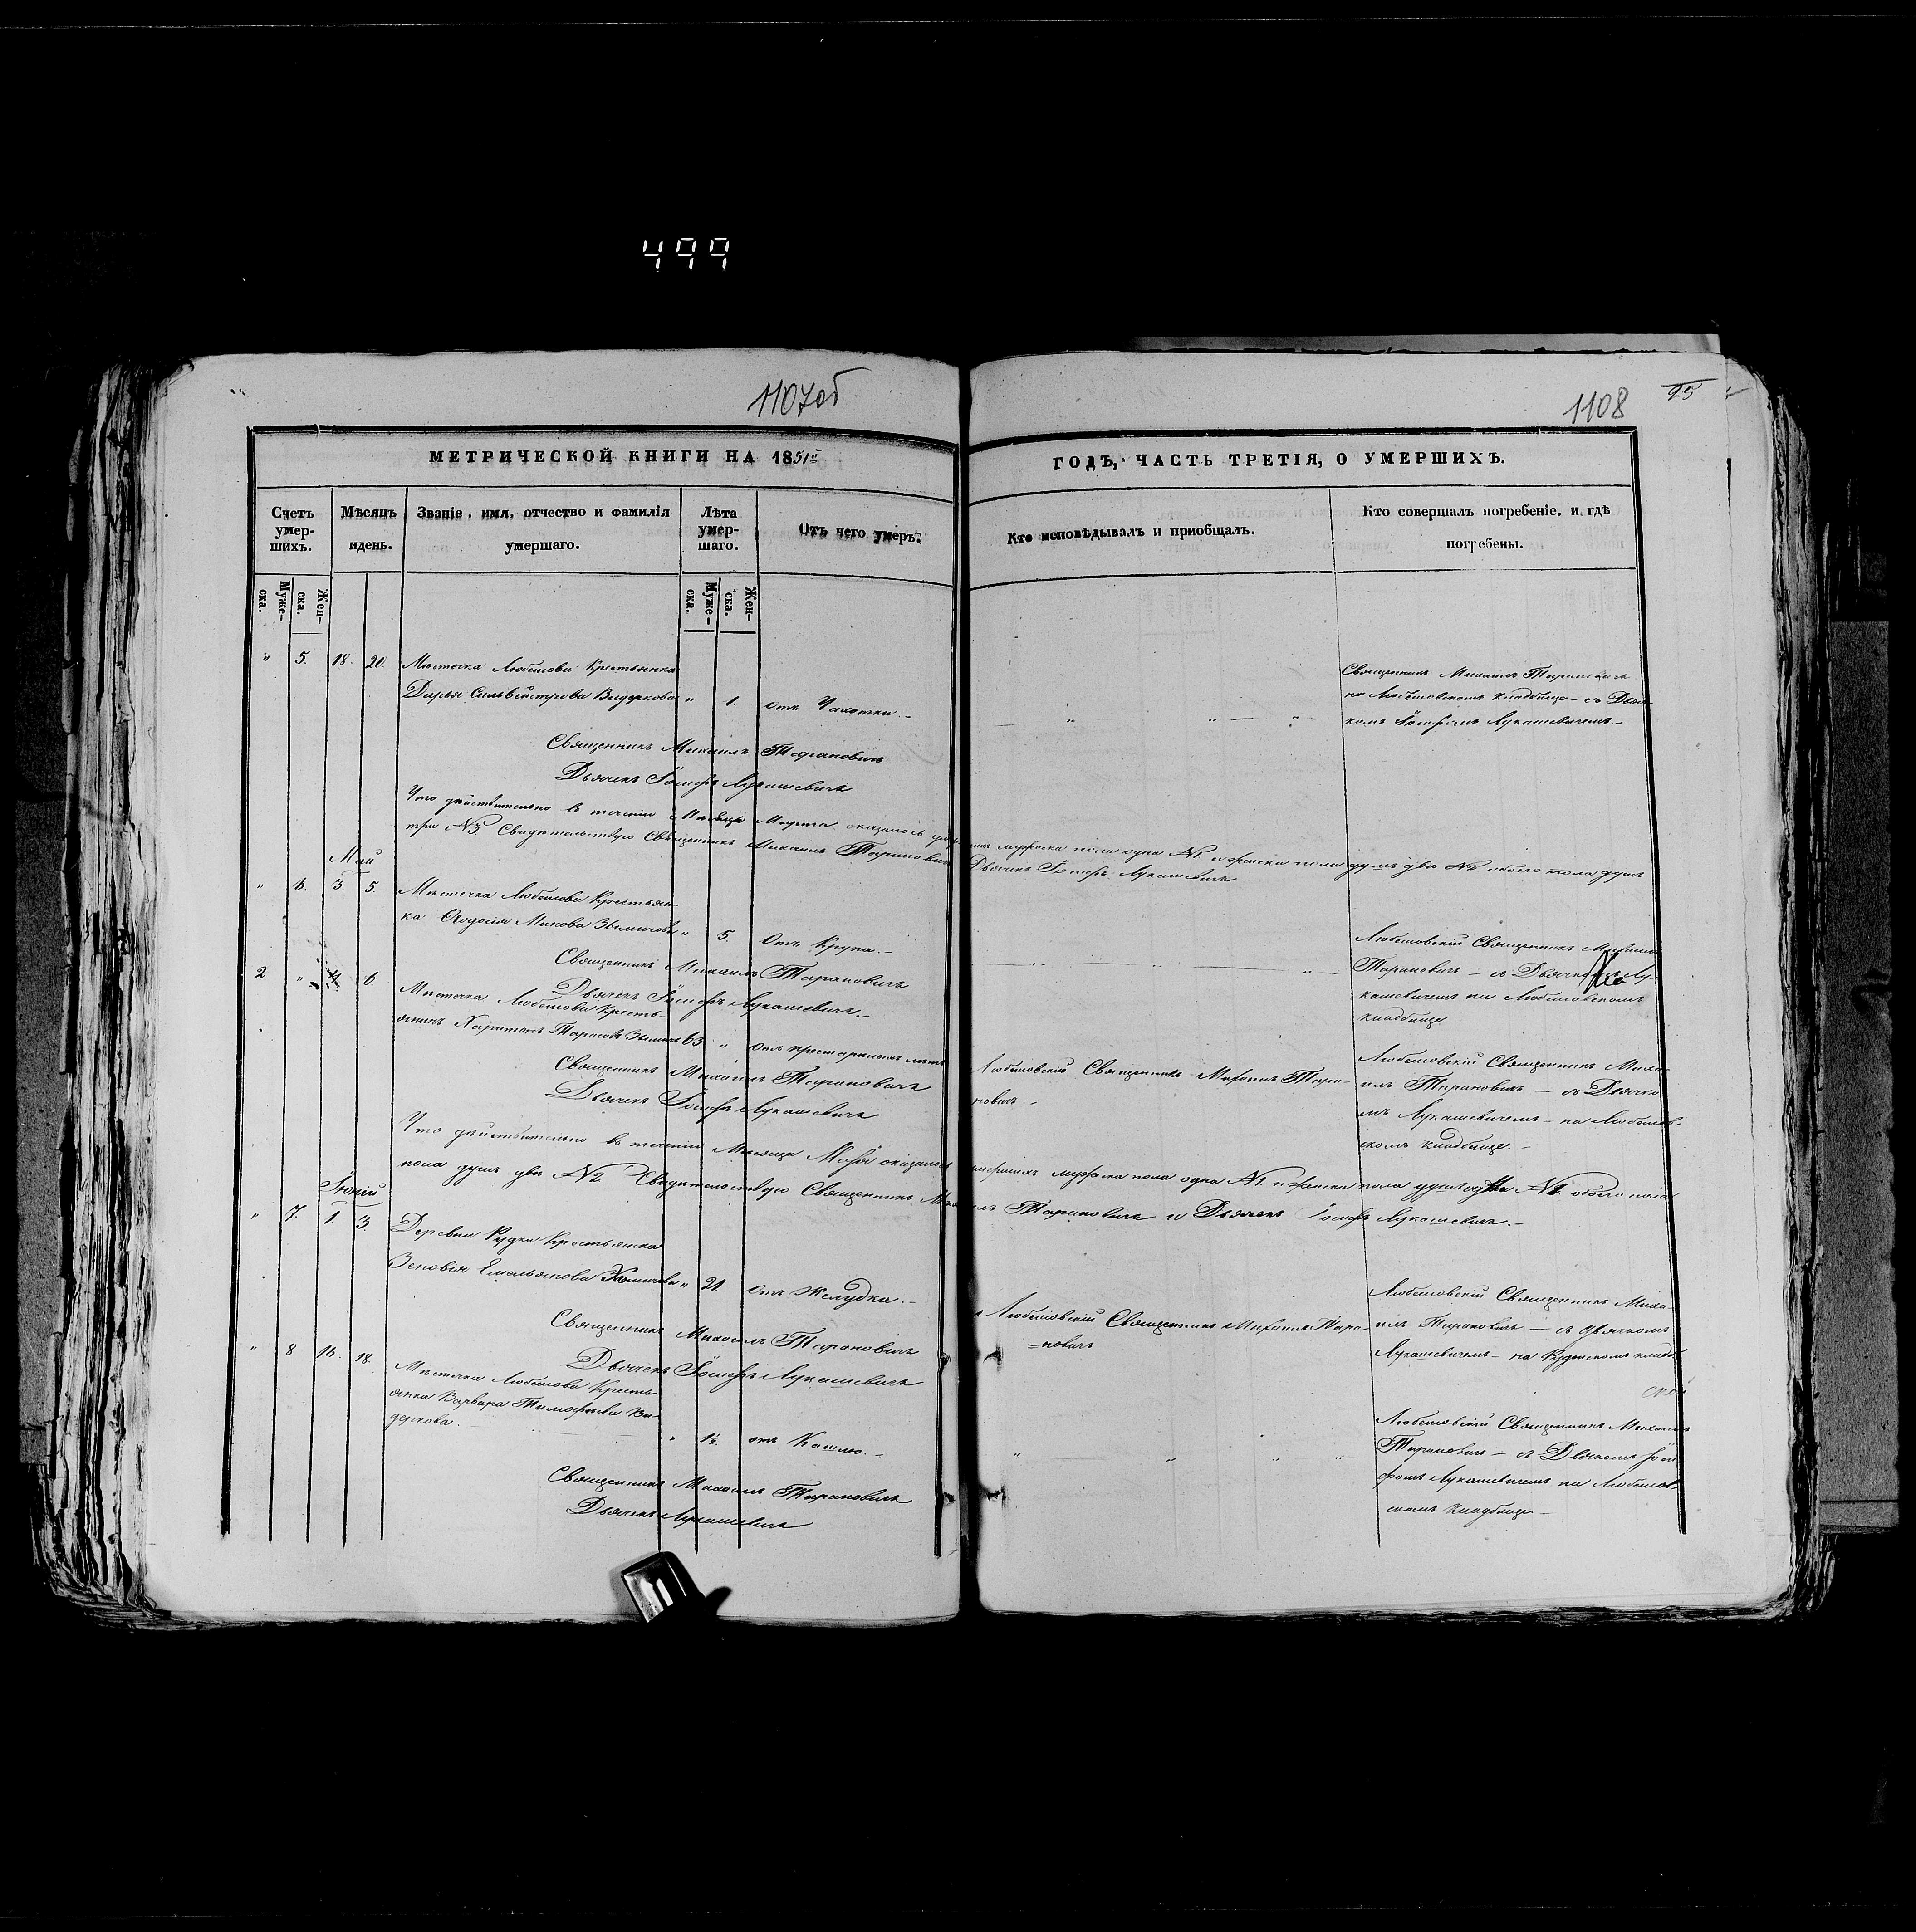 499
1107об
1108
95
МЕТРИЧЕСКОЙ КНИГИ НА 1851й
ГОДЪ, ЧАСТЬ ТРЕТІЯ, О УМЕРШИХЪ.
Счетъ умер-шихъ.
Мѣсяцъ идень.
Званіе, имя, отчество и фамилія умершаго.
Лѣта умер-шаго.
Отъ чего умеръ.
Кто исповѣдывалъ и приобщалъ.
Кто совершалъ погребеніе, и гдѣ погребены.
Муже-ска.
Жен-ска.
Муже-ска.
Жен-ска.
" 5. 18. 20. Мѣстечка Любешова Крестьянка
Дарья Сильвестрова Видеркова " 1. отъ Чахотки.-
Священникъ Михаилъ Тарановичъ
на Любешовскомъ кладбище - съ Дьяч-
комъ Іосифомъ Лукашевичемъ.-
Священникъ Михаилъ Тарановичъ
Дьячекъ Іосифъ Лукашевичъ
Что действительно въ течении Месяца Марта оказалось умершихъ мужеска пола одна №1 и женска пола душъ две №2 обоего пола душъ
три №3 Свидетельствую Священникъ Михаилъ Тарановичъ Дьячекъ Іосифъ Лукашевичъ
Май
" 6. 3. 5. Мѣстечка Любешова Крестьян-
ка Феодосія " 5. Отъ Крупа.-
Любешовскій Священникъ Михаилъ
Тарановичъ - съ Дьячкомъ Лу-
кашевичемъ на Любешовскомъ
кладбище
Священникъ Михаилъ Тарановичъ
Дьячекъ Іосифъ Лукашевичъ.-
2 " 4. 6. Мѣстечка Любешова Кресть-
янинъ Харитонъ Тарасовъ 63. " отъ престарелыхъ летъ
Любешовскій Священникъ Михаилъ Тара-
новичъ.-
Любешовскій Священникъ Миха-
илъ Тарановичъ - съ Дьячко
мъ Лукашевичемъ - на Любешов-
скомъ кладбище.-
Священникъ Михаилъ Тарановичъ
Дьячекъ Іосифъ Лукашевичъ
Что действительно въ течении Месяца Маія оказалось умершихъ мужеска пола одна №1 и женска пола душъ одна №1 обоего пола
пола душъ две №2 Свидетельствую Священникъ Михаилъ Тарановичъ и Дьячекъ Іосифъ Лукашевичъ.-
Іюній
" 7. 1. 3. Деревни Рудки Крестьянка
Зеновія Емельянова " 21 отъ Желудка.-
Любешовскій Священникъ Михаилъ Тара-
=новичъ
Любешовскій Священникъ Миха-
илъ Тарановичъ - съ дьячкомъ
Лукашевичемъ - на Рудскомъ кладб
Священникъ Михаилъ Тарановичъ
Дьячекъ Іосифъ Лукашевичъ
" 8 16. 18. Мѣстечка Любешова Кресть
янка Варвара Тимофеева Ви-
деркова. " 1½. отъ Кашлю.-
Любешовскій Священникъ Михаилъ
Тарановичъ - съ Дьячкомъ Іоси-
фомъ Лукашевичемъ на Любешов-
скомъ кладбище -
Священникъ Михаилъ Тарановичъ
Дьячекъ Лукашевичъ